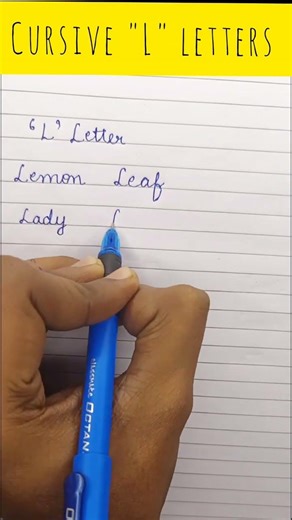 CURSIVE "L" LETTERS
'L' Letter
Lemon Leaf
Lady
OCTAN